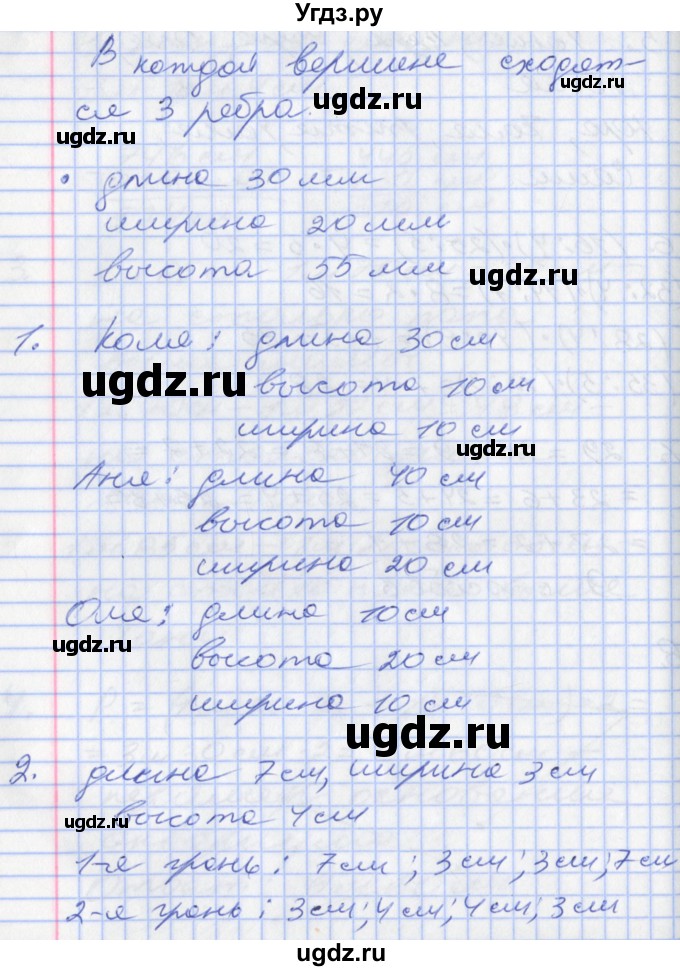 Угдз.ру
В каждой вершине сходят-
ugdz.ru
ся 3 ребра.
ugdz.ru
ugdz.ru
• длина 30 мм
ширина 20 мм
ugdz.ru
высота 55 мм
ugdz.ru
1. Коля: длина 30 см
ugdz.ru
высота 10 см
ширина 10 см
ugdz.ru
Аня: длина 40 см
высота 10 см
ширина 20 см
Оля: длина 10 см
ugdz.ru
высота 20 см
ugdz.ru
ширина 10 см
ugdz.ru
2. длина 7 см, ширина 3 см
ugdz.ru
высота 4 см
ugdz.ru
1-я грань: 7 см; 3 см; 3 см; 7 см
2-я грань: 3 см; 4 см; 4 см; 3 см
ugdz.ru